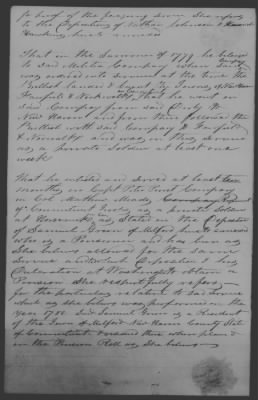 for proof of the foregoing service She refers
to the Depositions of Nathan Johnson &
hereto annexed
That in the Summer of 1779 he belonged
to said Militia Company when said Company
was ordered into service at the time the
British landed & burnt the Towns, of New Haven
Fairfield & Norwalk, that he went in
said Company from said Derby to
New Haven and from there followed the
British with said Company to Fairfield
& Norwalk and was in this service
as a private Soldier at least one
week
That he enlisted and served at least
months in Capt Company
in Col Meads Regiment
of Connecticut as a private Soldier
at Horseneck, as Stated in the Deposition
of Samuel Green of Milford hereto annexed
who is a Pensioner and has been as
She believes allowed for the same
Service and whose Deposition & his
Declaration at Washington to obtain a
Pension She respectfully refers
for the particulars in relation to said service
which as she believes was performed in the
year 1780. Said Samuel Green is a Resident
of the Town of Milford New Haven County State
of Connecticut & resided there when placed
on the Pension Roll as She believes